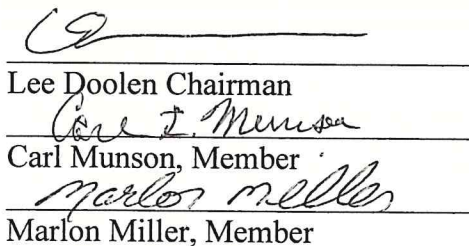 Lee Doolen Chairman
Carl I. Munson
Carl Munson, Member
Marlon Miller
Marlon Miller, Member